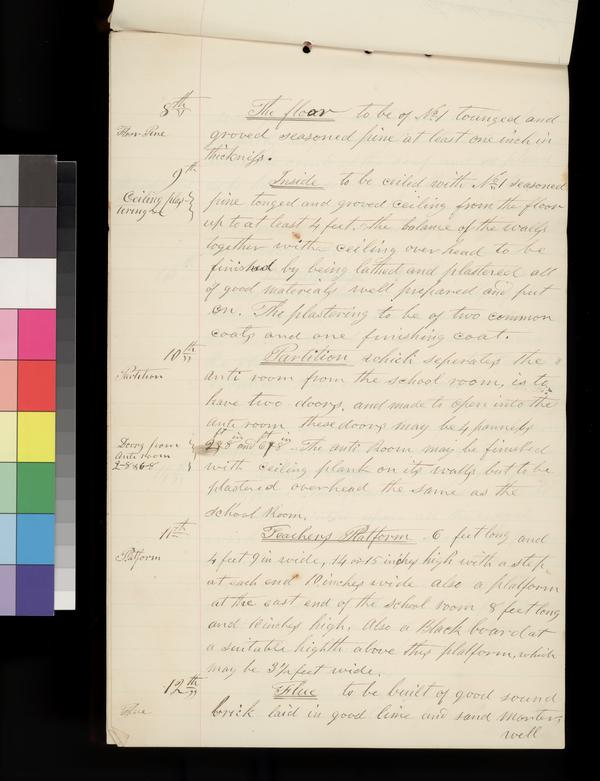 8th The floor to be of No 1 tounged and
Floor Pine groved seasoned pine at least one inch in
thickness.
9th Inside to be ceiled with No 1 seasoned
Ceiling plas- pine tonged and groved ceiling from the floor
tering up to at least 4 feet, the balance of the walls
together with ceiling over head to be
finished by being lathed and plastered all
of good materials well prepared and put
on. The plastering to be of two common
coats and one finishing coat.
10th Partition which seperates the
Partition anti room from the school room, is to
have two doors, and made to open into the
anti room, these doors may be 4 pannels
Doors from 2ft 8in and 6ft 8in. The anti Room may be finished
Anti room with ceiling plank on its walls but to be
2-8 x 6-8 plastered overhead the same as the
School Room.
11th Teachers Platform. 6 feet long and
Platform 4 feet 9 in wide, 14 or 15 inches high with a step
at each end 10 inches wide also a platform
at the east end of the school room 8 feet long
and 10 inches high, Also a Black board at
a suitable highth above this platform, which
may be 3½ feet wide.
12th Flue to be built of good sound
Flue brick laid in good lime and sand morter,
well